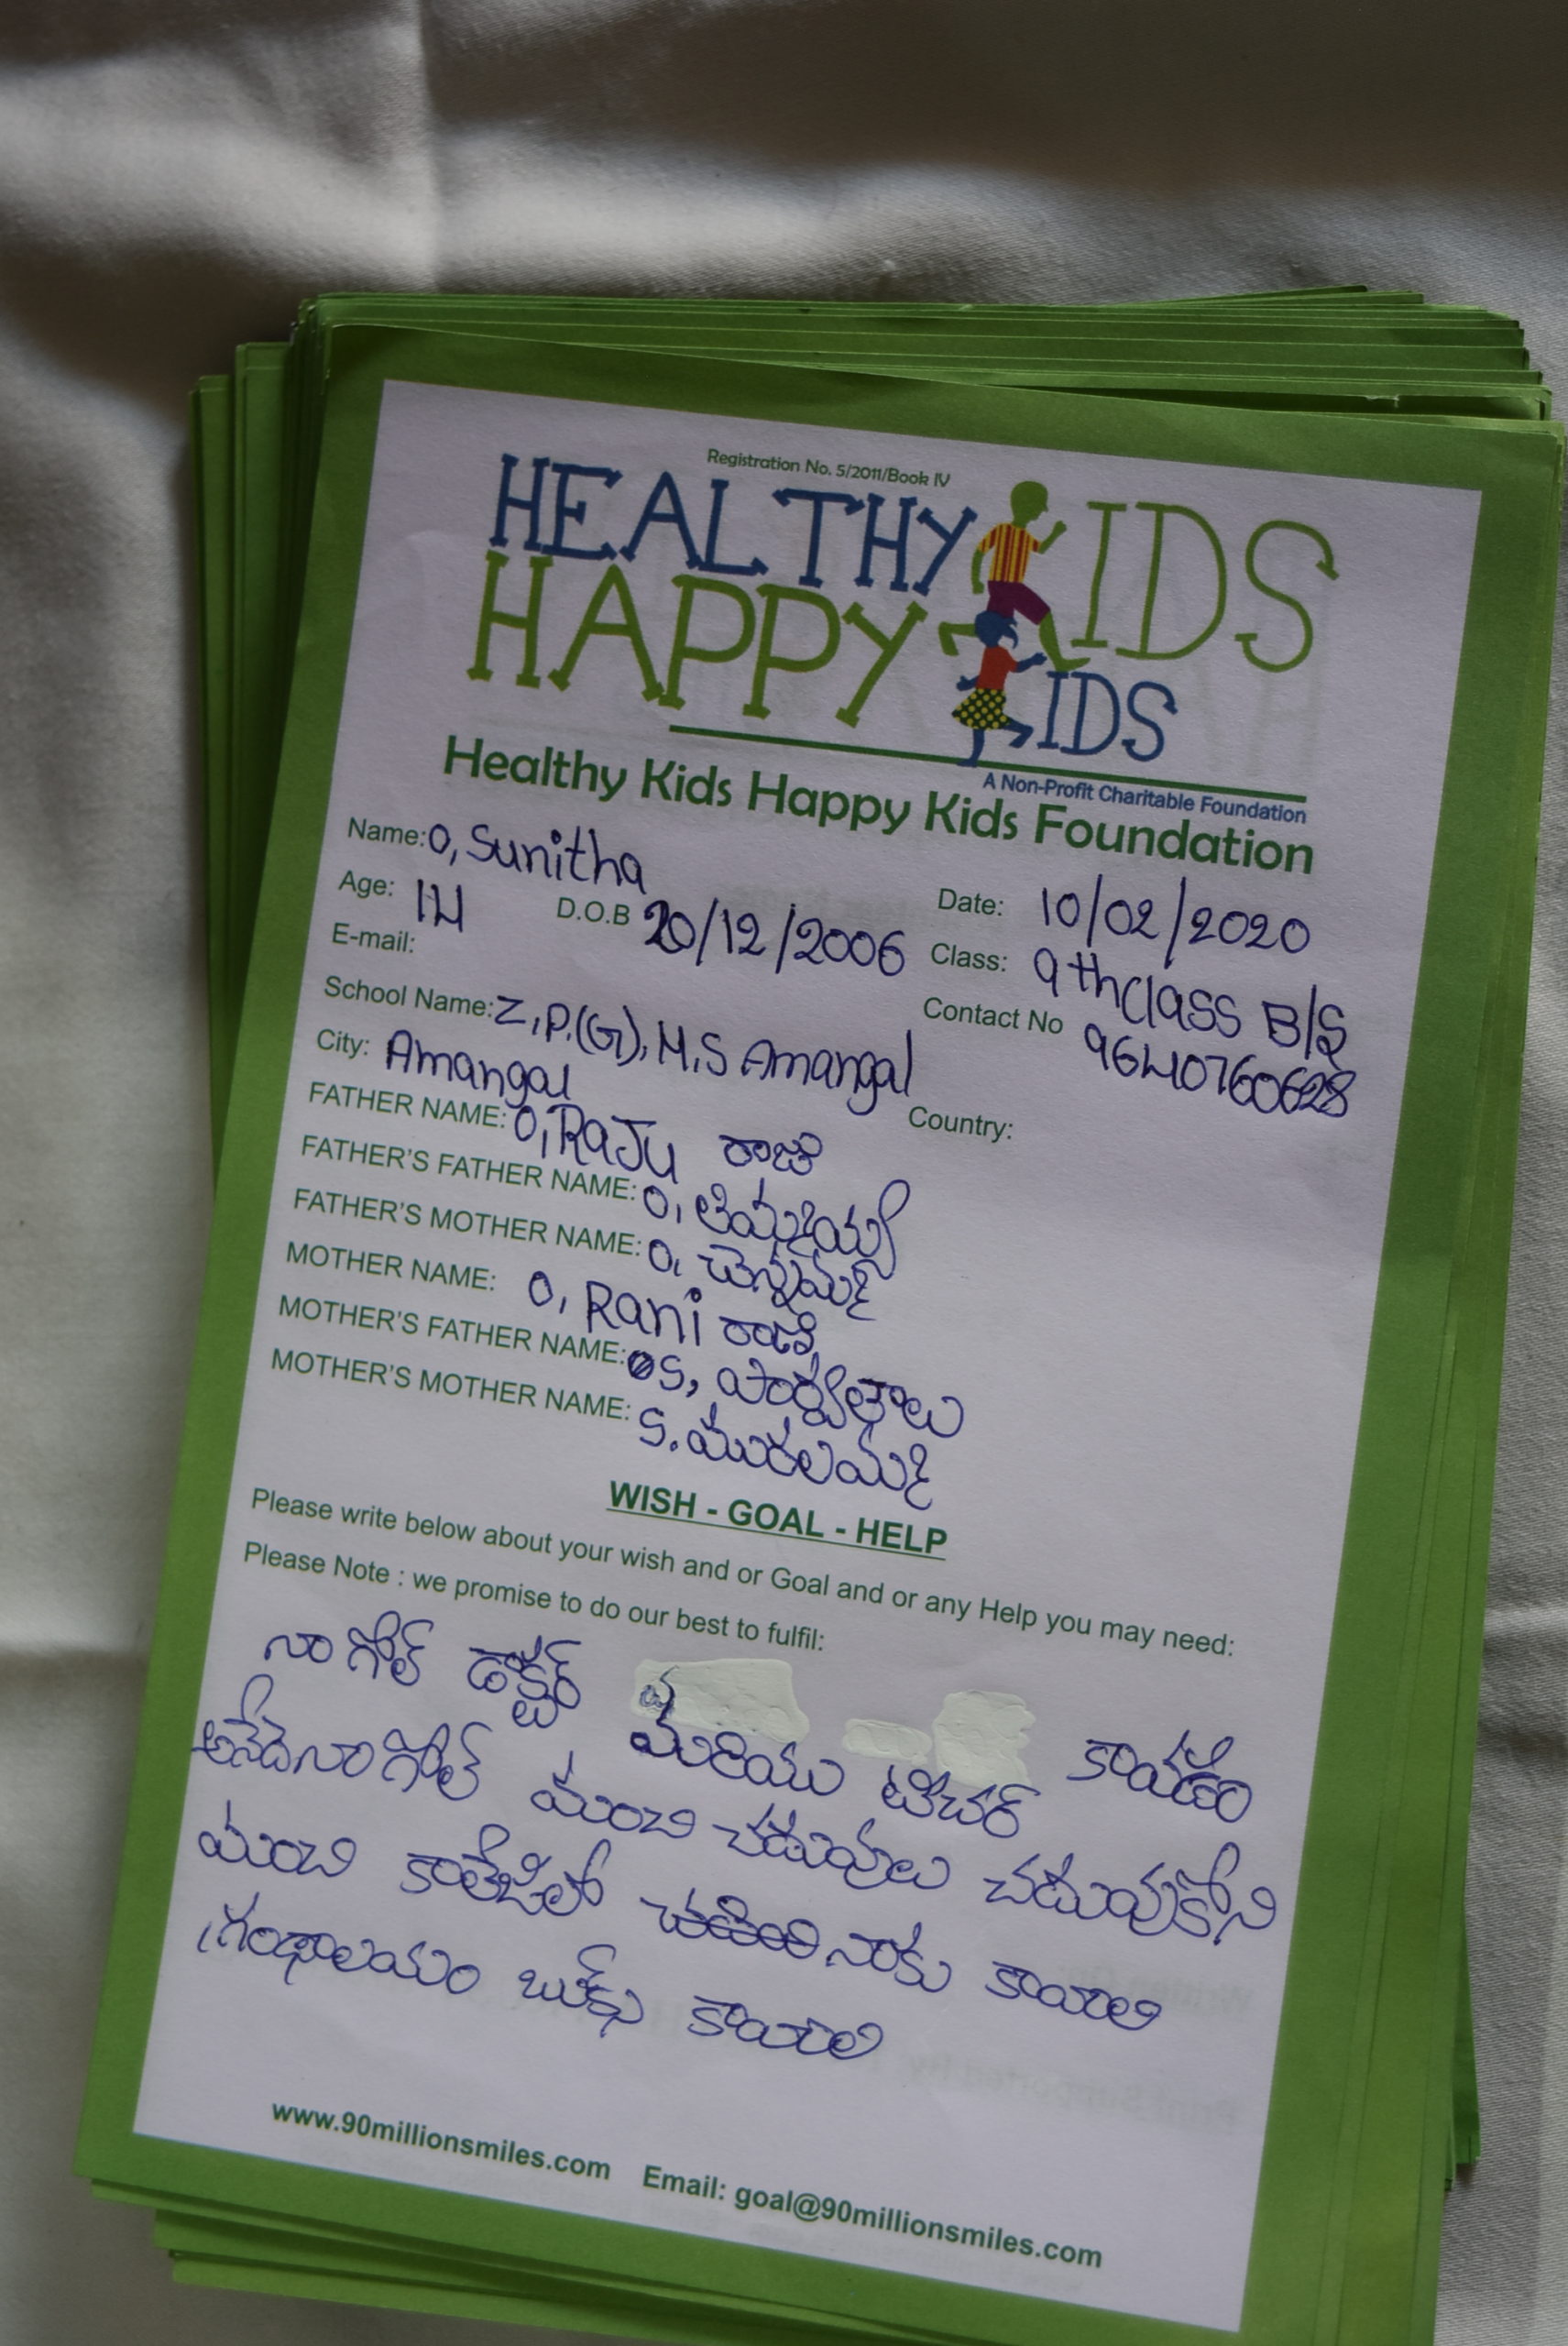 Registration No. 5/2011/Book IV
HEALTHY KIDS
HAPPY KIDS
A Non-Profit Charitable Foundation
Healthy Kids Happy Kids Foundation
Name: O, Sunitha Date: 10/02/2020
Age: 14 D.O.B 20/12/2006 Class: 9th class B/S
E-mail: Contact No 9640760628
School Name: Z,P.(G), H,S Amangal
City: Amangal Country:
FATHER NAME: O, RaJu రాజు
FATHER'S FATHER NAME: O, తిమ్మయ్య
FATHER'S MOTHER NAME: O, చెన్నమ్మ
MOTHER NAME: O, Rani రాణి
MOTHER'S FATHER NAME: S, పర్వతాలు
MOTHER'S MOTHER NAME: S. మురలమ్మ
WISH - GOAL - HELP
Please write below about your wish and or Goal and or any Help you may need:
Please Note : we promise to do our best to fulfil:
నా గోల్ డాక్టర్ మరియు టీచర్ కావడం
అనేదె నా గోల్ మంచి చదువులు చదువుకోని
మంచి కాలేజిలో నాకు కావాలి
గ్రంథాలయం బుక్స్ కావాలి
www.90millionsmiles.com Email: goal@90millionsmiles.com